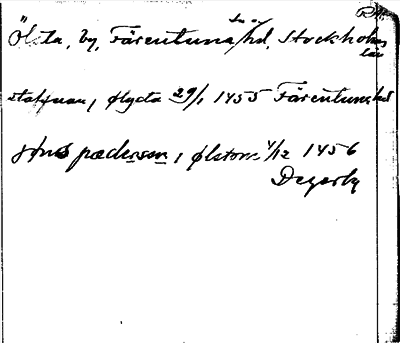 Ölsta, by, Färentuna hd, Stockholms
län
staffan i ølgsta 29/1 1455 Färentuna hd
jønis pædersen i ølstom 4/12 1456
Degerby